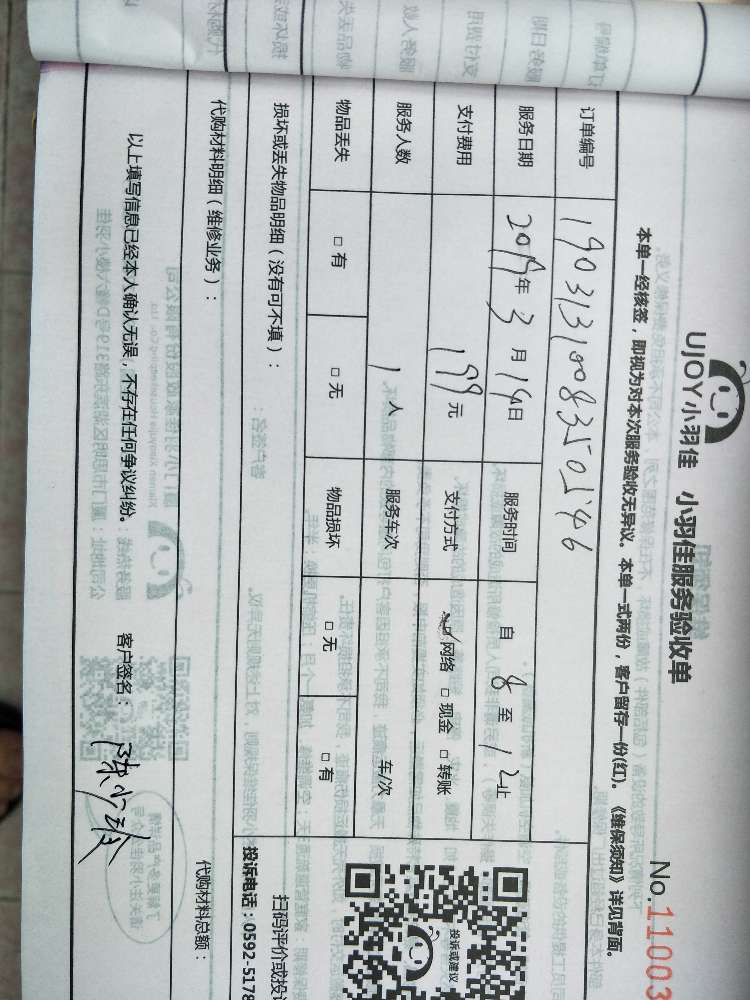 UJOY小羽佳 小羽佳服务验收单
No.11003
本单一经核签，即视为对本次服务验收无异议。本单一式两份，客户留存一份(红)。《维保须知》详见背面。
订单编号 190313100835054546
服务日期 2019年3月14日 服务时间 自8至12止
支付费用 199元 支付方式 网络 □现金 □转账
服务人数 1人 服务车次 车/次
物品丢失 □有 □无 物品损坏 □无 □有
损坏或丢失物品明细（没有可不填）：
扫码评价或投
投诉电话：0592-5178
投诉或建议
代购材料明细（维修业务）： 代购材料总额：
以上填写信息已经本人确认无误，不存在任何争议纠纷。 客户签名：